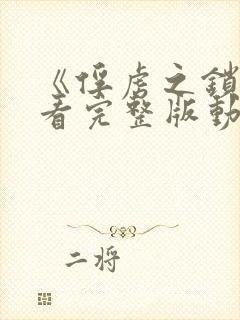 《俘虏之鎖
看完整版動
二将